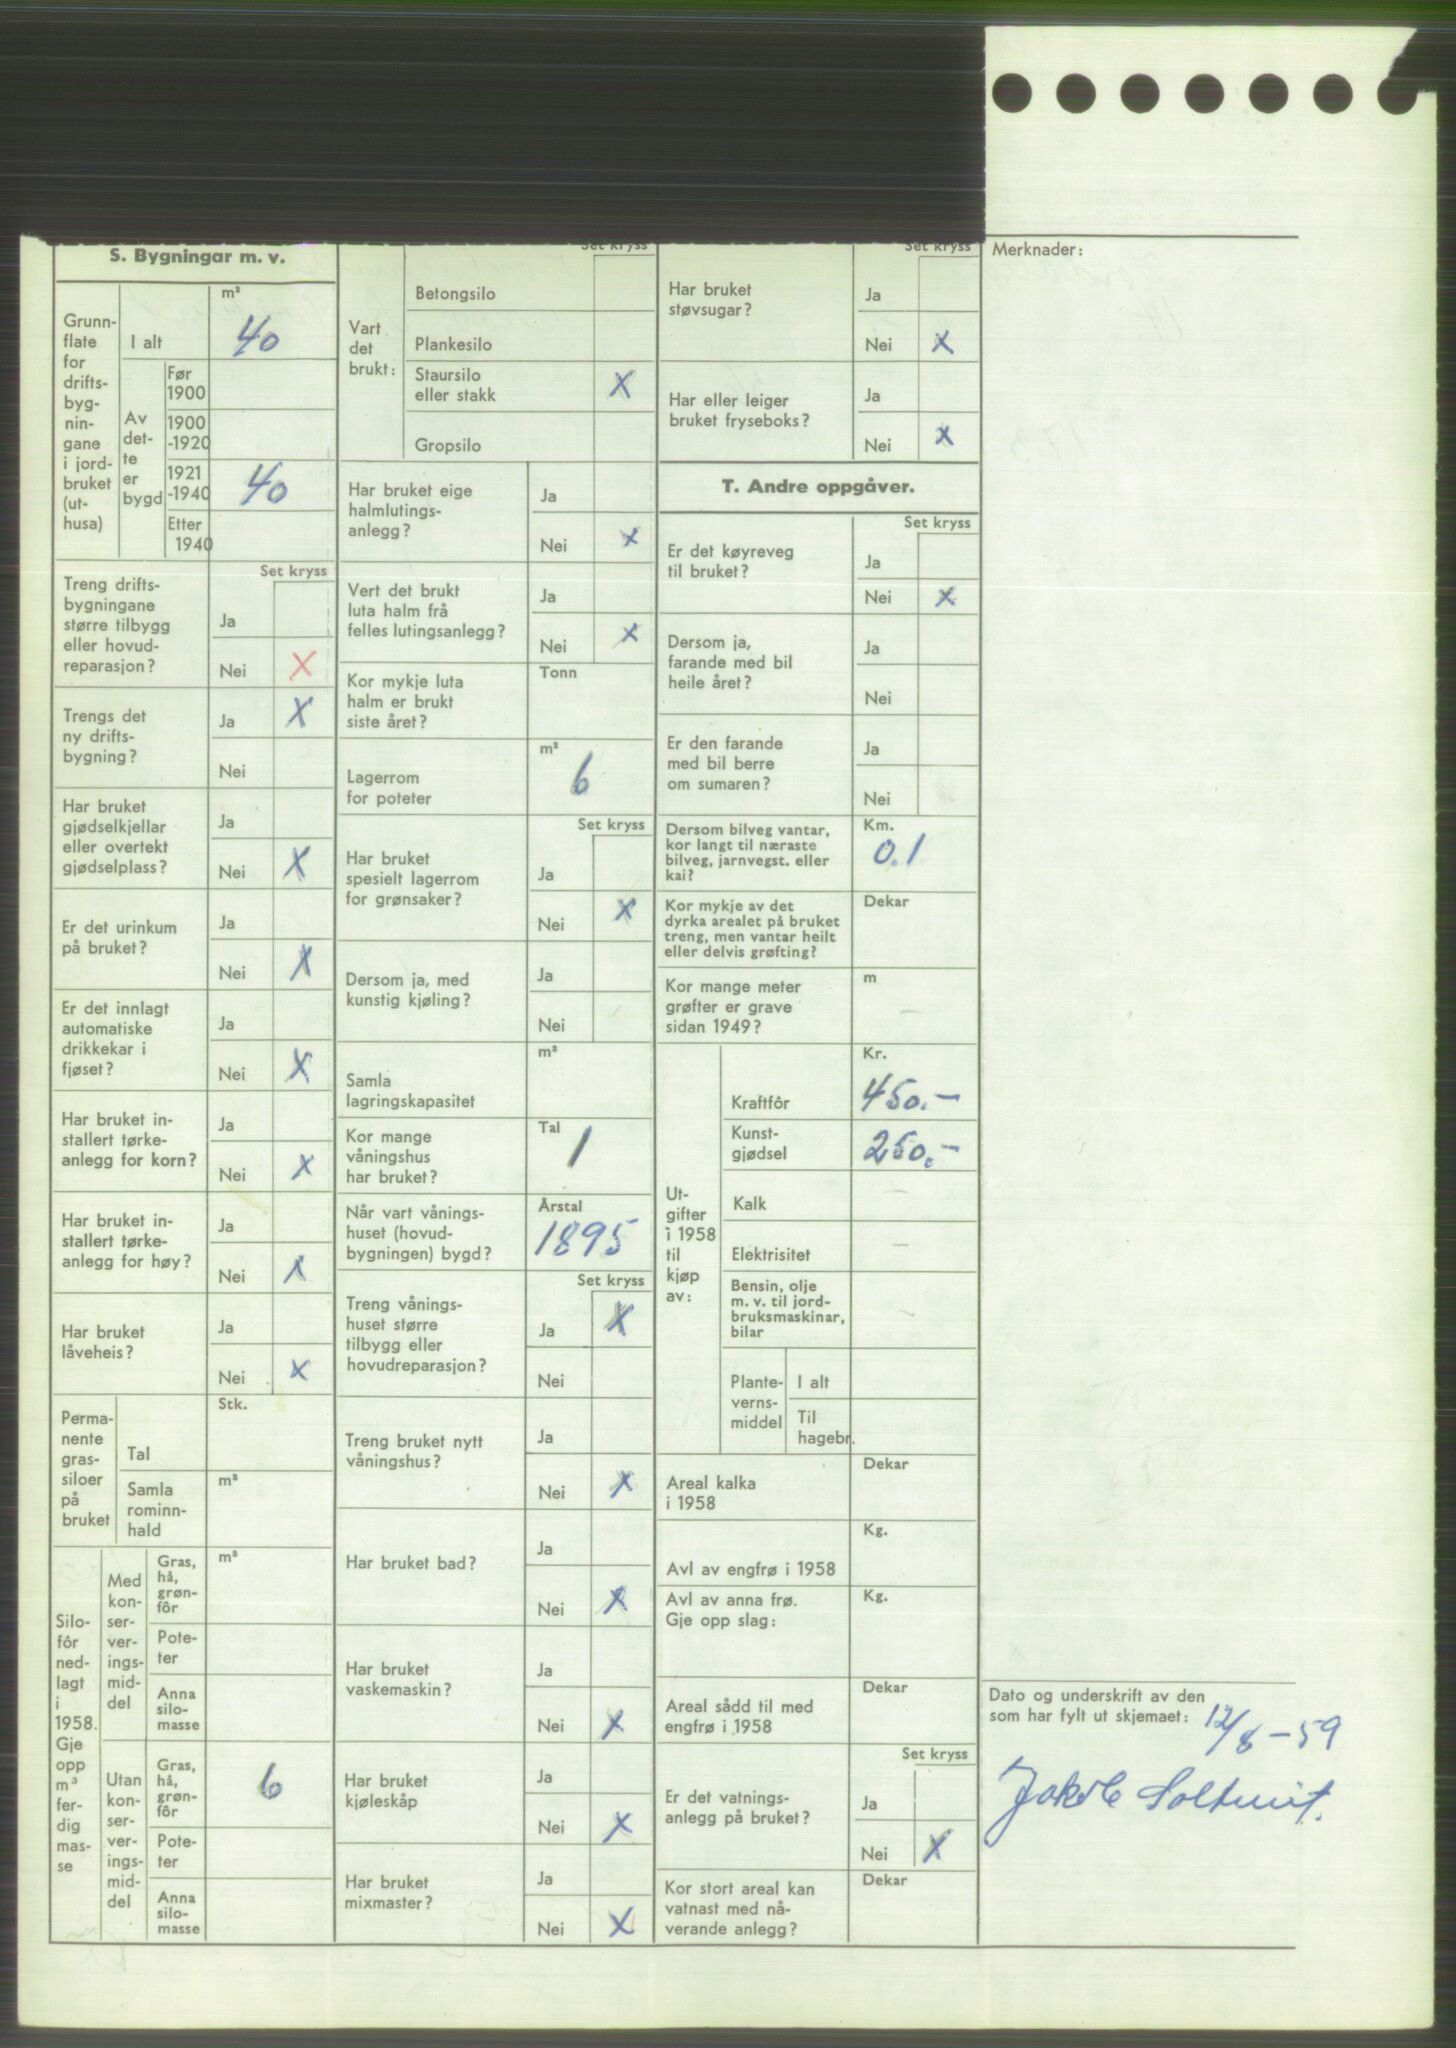 S. Bygningar m. v.
Grunn-
flate
for
drifts-
byg-
nin-
gane
i jord-
bruket
(ut-
husa)
I alt
m²
40
Av
det-
te
er
bygd
Før
1900
1900
-1920
1921
-1940
40
Etter
1940
Set kryss
Treng drifts-
bygningane
større tilbygg
eller hovud-
reparasjon?
Ja
Nei X
Trengs det
ny drifts-
bygning?
Ja X
Nei
Har bruket
gjødselkjellar
eller overtekt
gjødselplass?
Ja
Nei X
Er det urinkum
på bruket?
Ja
Nei X
Er det innlagt
automatiske
drikkekar i
fjøset?
Ja
Nei X
Har bruket in-
stallert tørke-
anlegg for korn?
Ja
Nei X
Har bruket in-
stallert tørke-
anlegg for høy?
Ja
Nei X
Har bruket
låveheis?
Ja
Nei X
Perma-
nente
gras-
siloer
på
bruket
Tal
Stk.
Samla
rominn-
hald
m³
Silo-
fôr
ned-
lagt
i
1958.
Gje
opp
m³
fer-
dig
mas-
se
Med
kon-
ser-
ver-
ings-
mid-
del
Gras,
hå,
grøn-
fôr
m³
Pote-
ter
Anna
silo-
masse
Utan
kon-
ser-
ver-
ings-
mid-
del
Gras,
hå,
grøn-
fôr
6
Pote-
ter
Anna
silo-
masse
Set kryss
Vart
det
brukt:
Betongsilo
Plankesilo
Staursilo
eller stakk X
Gropsilo
Har bruket eige
halmlutings-
anlegg?
Ja
Nei X
Vert det brukt
luta halm frå
felles lutingsanlegg?
Ja
Nei X
Kor mykje luta
halm er brukt
siste året?
Tonn
Lagerrom
for poteter
m³
6
Set kryss
Har bruket
spesielt lagerrom
for grønsaker?
Ja
Nei X
Dersom ja, med
kunstig kjøling?
Ja
Nei
Samla
lagringskapasitet
m³
Kor mange
våningshus
har bruket?
Tal
1
Når vart vånings-
huset (hovud-
bygningen) bygd?
Årstal
1895
Set kryss
Treng vånings-
huset større
tilbygg eller
hovudreparasjon?
Ja X
Nei
Treng bruket nytt
våningshus?
Ja
Nei X
Har bruket bad?
Ja
Nei X
Har bruket
vaskemaskin?
Ja
Nei X
Har bruket
kjøleskåp
Ja
Nei X
Har bruket
mixmaster?
Ja
Nei X
Set kryss
Har bruket
støvsugar?
Ja
Nei X
Har eller leiger
bruket fryseboks?
Ja
Nei X
T. Andre oppgåver.
Set kryss
Er det køyreveg
til bruket?
Ja
Nei X
Dersom ja,
farande med bil
heile året?
Ja
Nei
Er den farande
med bil berre
om sumaren?
Ja
Nei
Dersom bilveg vantar,
kor langt til næraste
bilveg, jarnvegst. eller
kai?
Km.
0.1
Kor mykje av det
dyrka arealet på bruket
treng, men vantar heilt
eller delvis grøfting?
Dekar
Kor mange meter
grøfter er grave
sidan 1949?
m
–
Ut-
gifter
i 1958
til
kjøp
av:
Kr.
Kraftfôr 450.–
Kunst-
gjødsel 250.–
Kalk –
Elektrisitet –
Bensin, olje
m. v. til jord-
bruksmaskinar,
bilar –
Plante-
verns-
middel
I alt
Til
hagebr.
Areal kalka
i 1958
Dekar
Avl av engfrø i 1958
Kg.
Avl av anna frø.
Gje opp slag:
Kg.
Areal sådd til med
engfrø i 1958
Dekar
Set kryss
Er det vatnings-
anlegg på bruket?
Ja
Nei X
Kor stort areal kan
vatnast med nå-
verande anlegg?
Dekar
Merknader:
Dato og underskrift av den
som har fylt ut skjemaet: 12/8 – 59
Jakob